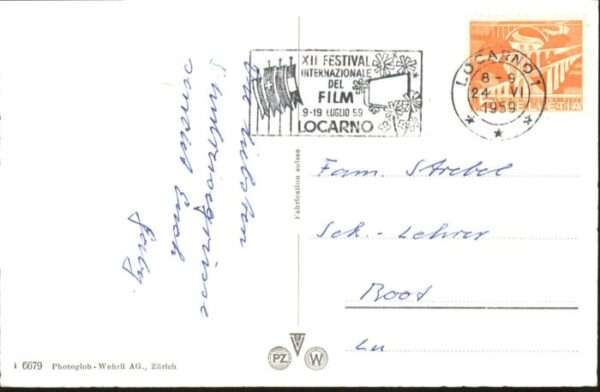 XII FESTIVAL
INTERNAZIONALE
DEL
FILM
9-19 LUGLIO 59
LOCARNO
LOCARNO 1
8-9
24. VI
1959
HELVETIA
Die liebsten
Euch
Gaby.
Fabrication suisse
Fam. Strebel
Sek.-Lehrer
Root
Lu
PZ
W
6679 Photoglob-Wehrli AG., Zürich